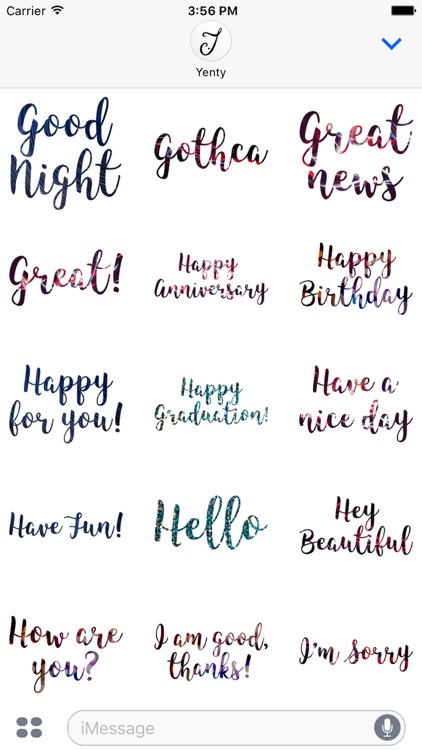 Carrier 3:56 PM
Yenty
Good
Night
Gothca
Great
news
Great!
Happy
Anniversary
Happy
Birthday
Happy
for you!
Happy
Graduation!
Have a
nice day
Have Fun!
Hello
Hey
Beautiful
How are
you?
I am good,
thanks!
I'm Sorry
iMessage